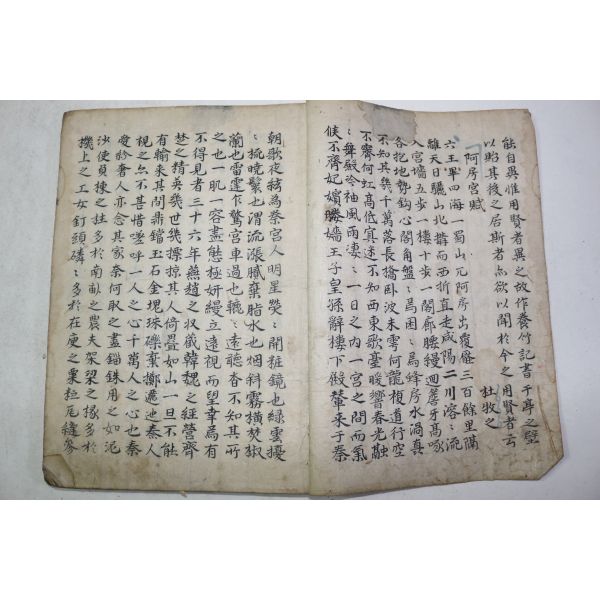 能自異惟用賢者異之故作養竹記書于亭之壁
以貽其後之居斯者亦欲以聞於今之用賢者云
阿房宮賦　杜牧之
六王畢四海一蜀山兀阿房出覆壓三百餘里隔
離天日驪山北搆而西折直走咸陽二川溶〻流
入宮墻五步一樓十步一閣廊腰縵迴簷牙高啄
各抱地勢鈎心閣角盤〻焉囷〻焉蜂房水渦矗
不知其幾千萬落長橋臥波未雲何龍複道行空
不霽何虹高低冥迷不知西東歌臺暖響春光融
〻舞殿冷袖風雨凄〻一日之內一宮之間而氣
候不齊妃嬪媵嬙王子皇孫辭樓下殿輦來于秦
朝歌夜絃為秦宮人明星熒〻開粧鏡也綠雲擾
〻梳曉鬟也渭流漲膩棄脂水也烟斜霧橫焚椒
蘭也雷霆乍驚宮車過也轆〻遠聽杳不知其所
之也一肌一容盡態極姸縵立遠視而望幸焉有
不得見者三十六年燕趙之収儀韓魏之經營齊
楚之精英幾世幾標掠其人倚疊如山一旦不能
有輸來其間鼎鐺玉石金塊珠礫棄擲邐迤秦人
視之亦不甚惜嗟呼一人之心千萬人之心也秦
愛紛奢人亦念其家奈何取之盡錙銖用之如泥
沙使負棟之柱多於南畝之農夫架梁之椽多於
機上之工女釘頭磷〻多於在庾之粟粒瓦縫參